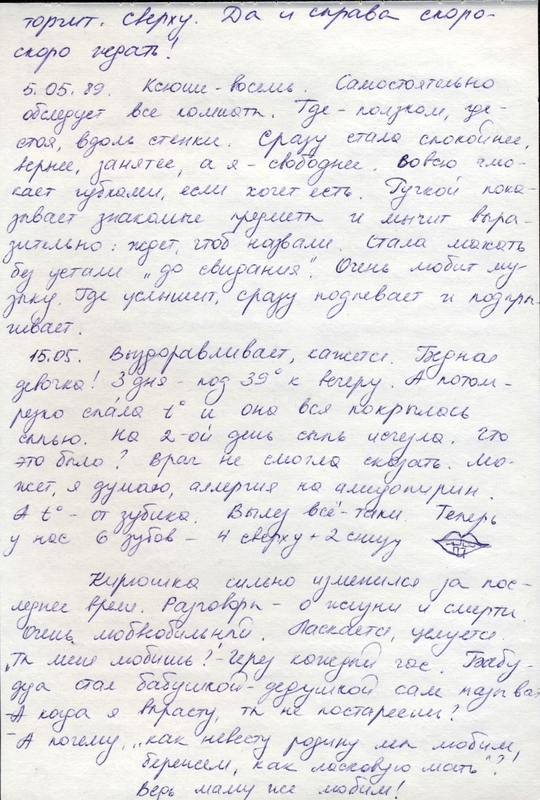 торчит. Сверху. Да и справа скоро-
скоро ждать!
5.05.89. Ксюше - восемь. Самостоятельно
обследует все комнаты. Где - ползком, где -
стоя, вдоль стенки. Сразу стала спокойнее,
вернее, занятее, а я - свободнее. Вовсю чмо-
кает губками, если хочет есть. Ручкой пока-
зывает знакомые предметы и мычит выра-
зительно: ждет, чтоб назвали. Стала махать
без устали „до свидания“. Очень любит му-
зыку. Где услышит, сразу подпевает и подпры-
гивает.
15.05. Выздоравливает, кажется. Бедная
девочка! 3 дня - под 39° к вечеру. А потом -
резко спала t° и она вся покрылась
сыпью. На 2-ой день сыпь исчезла. Что
это было? Врач не смогла сказать. Мо-
жет, я думаю, аллергия на амидопирин.
А t° - от зубика. Вылез всё-таки. Теперь
у нас 6 зубов - 4 сверху + 2 снизу
Кирюшка сильно изменился за пос-
леднее время. Разговоры - о жизни и смерти.
Очень любвеобильный. Ласкается, целуется.
„Ты меня любишь?“ - через каждый час. Бабу-
дуа стал бабушкой-дедушкой сам называть
- А когда я вырасту, ты не постареешь?
- А почему, „как невесту родину мы любим,
бережем, как ласковую мать“?
Ведь маму же любим!